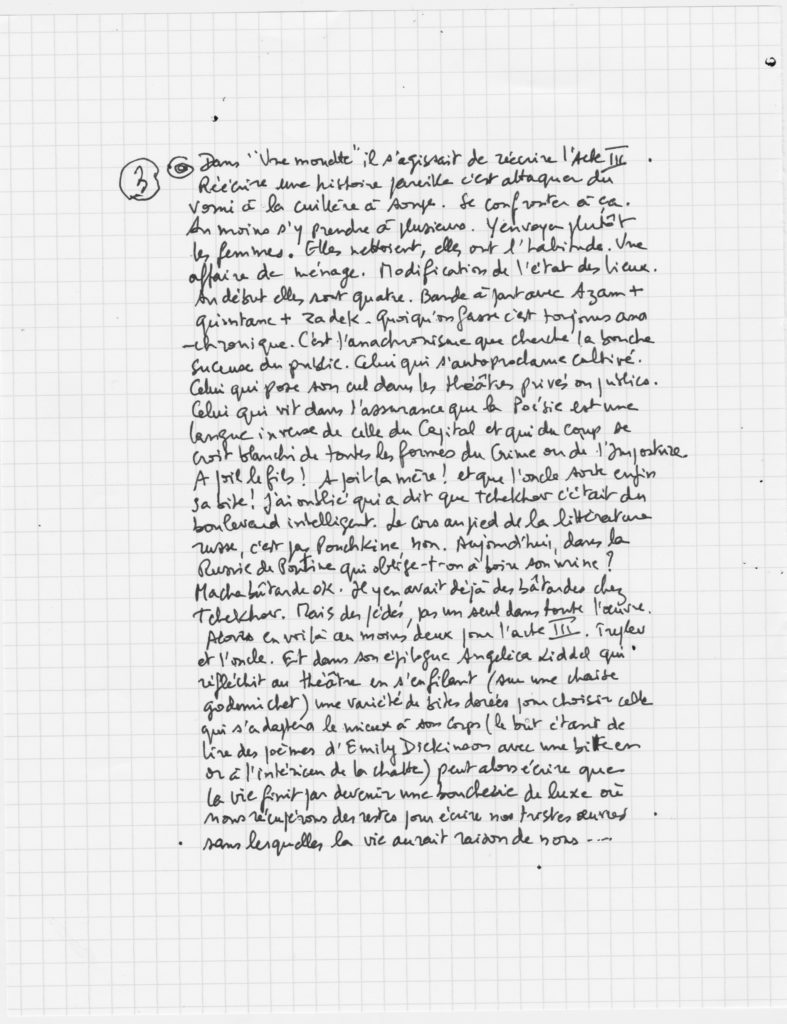 3 Dans "Une mouette" il s'agissait de réécrire l'Acte III.
Réécrire une histoire pareille c'est attaquer du
vomi à la cuillère à soupe. Se confronter à ça.
Au moins s'y prendre à plusieurs. Y envoyer plutôt
les femmes. Elles nettoient, elles ont l'habitude. Une
affaire de ménage. Modification de l'état des lieux.
Au début elles sont quatre. Bande à part avec Azam +
Quintane + Zadek. Quoiqu'on fasse c'est toujours ana
-chronique. C'est l'anachronisme que cherche la bouche
suceuse du public. Celui qui s'autoproclame cultivé.
Celui qui pose son cul dans les théâtres privés ou publics.
Celui qui vit dans l'assurance que la Poésie est une
langue inverse de celle du Capital et qui du coup se
croit blanchi de toutes les formes du Crime ou de l'Imposture.
A poil le fils! A poil la mère! et que l'oncle sorte enfin
sa bite! J'ai oublié qui a dit que Tchekhov c'était du
boulevard intelligent. Le cors au pied de la littérature
russe, c'est pas Pouchkine, non. Aujourd'hui, dans la
Russie de Poutine qui oblige-t-on à boire son urine?
Macha bâtarde ok. Il y en avait déjà des bâtardes chez
Tchekhov. Mais des pédés, pas un seul dans toute l'œuvre.
Alors en voilà au moins deux pour l'acte III. Treplev
et l'oncle. Et dans son épilogue Angelica Liddel qui
réfléchit au théâtre en s'enfilant (sur une chaise
godemichet) une variété de bites dorées pour choisir celle
qui s'adaptera le mieux à son corps (le but étant de
lire des poèmes d'Emily Dickinson avec une bitte en
or à l'intérieur de la chatte) peut alors écrire que
la vie finit par devenir une boucherie de luxe où
nous récupérons des restes pour écrire nos tristes œuvres
sans lesquelles la vie aurait raison de nous ....